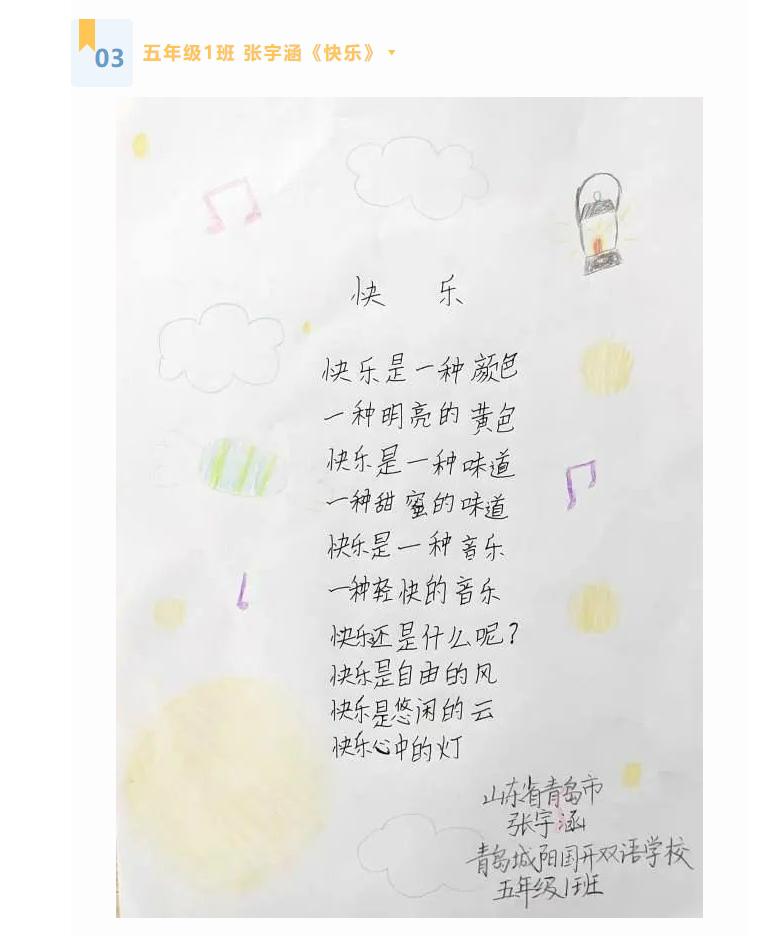 03
五年级1班 张宇涵《快乐》
快 乐
快乐是一种颜色
一种明亮的黄色
快乐是一种味道
一种甜蜜的味道
快乐是一种音乐
一种轻快的音乐
快乐还是什么呢?
快乐是自由的风
快乐是悠闲的云
快乐心中的灯
山东省青岛市
张宇涵
青岛城阳国开双语学校
五年级1班